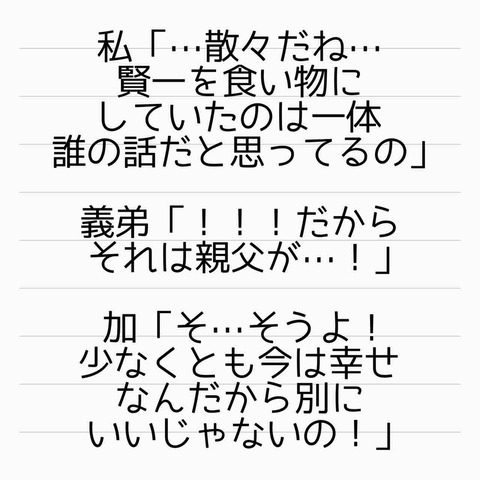 私「…散々だね…
賢一を食い物に
していたのは一体
誰の話だと思ってるの」
義弟「！！！だから
それは親父が…！」
加「そ…そうよ！
少なくとも今は幸せ
なんだから別に
いいじゃないの！」